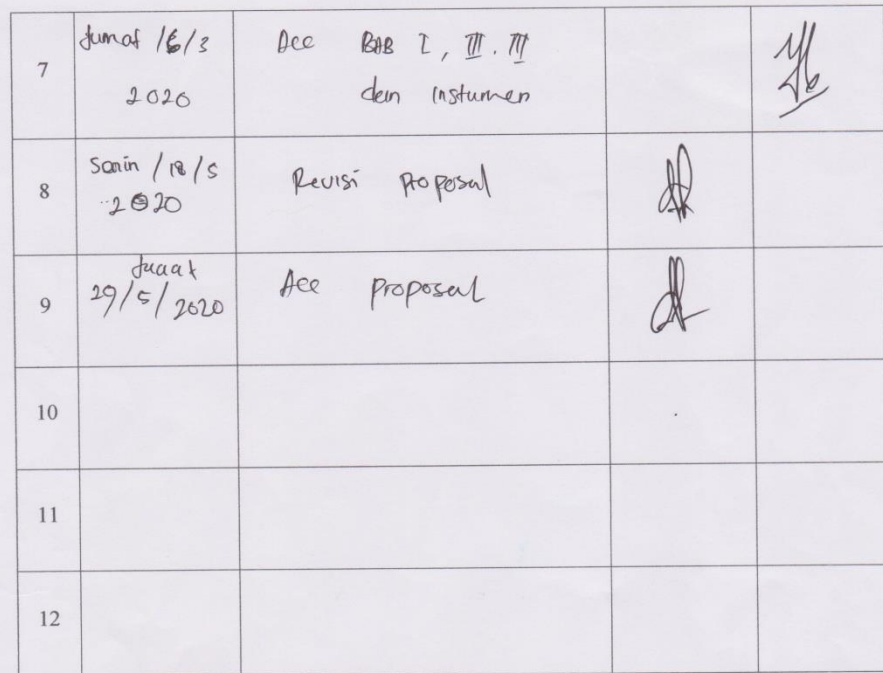 7
Jumat /6/3
2020
Acc BAB I, II. III
dan instumen
8
Senin /18/5
2020
Revisi proposal
9
Jumat
29/5/2020
Acc proposal
10
11
12